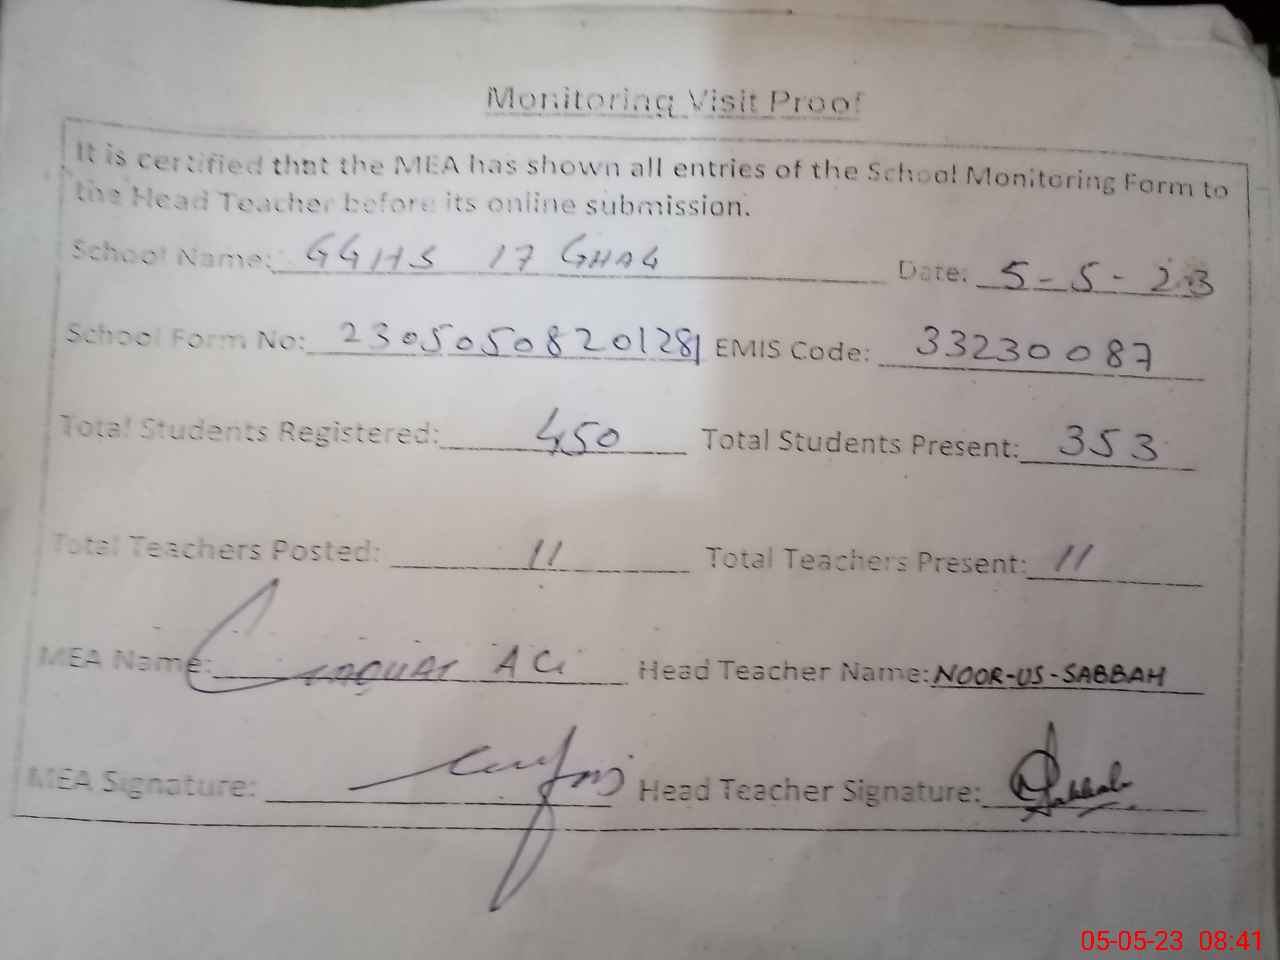 Monitoring Visit Proof
It is certified that the MEA has shown all entries of the School Monitoring Form to
the Head Teacher before its online submission.
School Name: GGHS 17 GHAG Date: 5-5-23
School Form No: 23050508201281 EMIS Code: 33230087
Total Students Registered: 450 Total Students Present: 353
Total Teachers Posted: 11 Total Teachers Present: 11
MEA Name: LIAQUAT ALi Head Teacher Name: NOOR-US-SABBAH
MEA Signature: Head Teacher Signature:
05-05-23 08:41